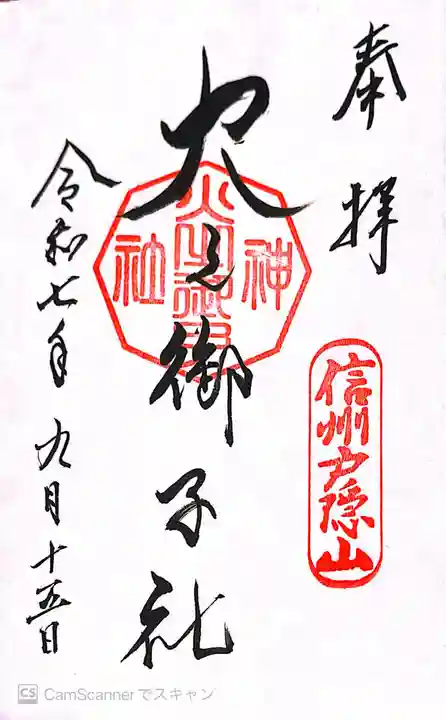 奉拝
信州戸隠山
火之御子社
神社
令和七年九月十五日
CS CamScannerでスキャン